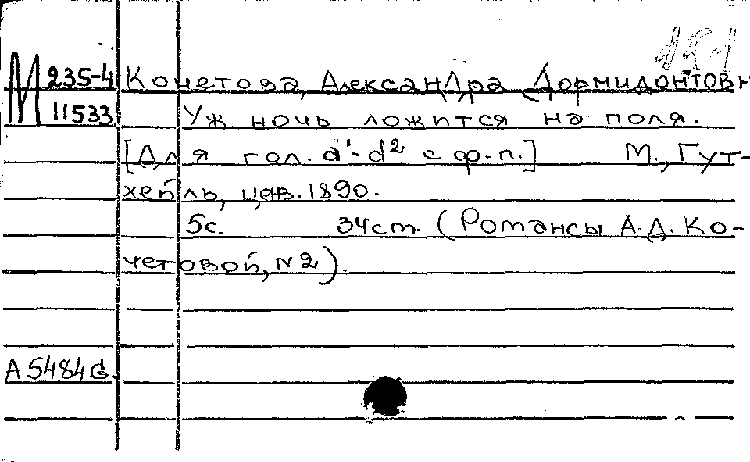 М 235-4 Кочетова, Александра Дормидонтовн
11533 Уж ночь ложится на поля.
[Для гол. d¹-d² с ф-п.] М., Гут-
хейль, ценз. 1890.
5с. 34ст. (Романсы А.Д. Ко-
четовой, №2).
А 5484